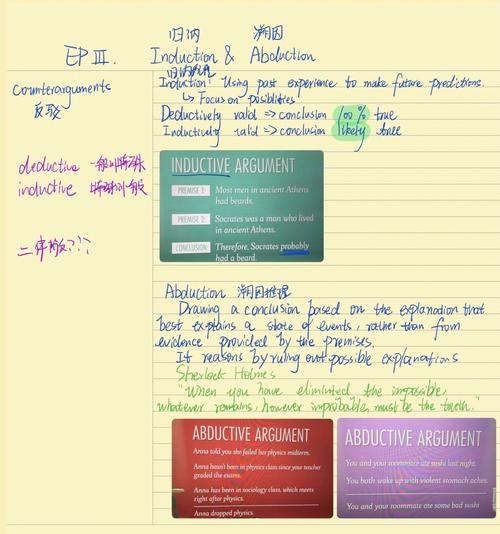 归纳 溯因
EP III. Induction & Abduction
counterarguments
反驳
deductive 一般到特殊
inductive 特殊到一般
三
归纳推理
Induction: Using past experience to make future predictions.
↳ Focus on posiblities
Deductively valid => conclusion 100% true
Inductively valid => conclusion likely true
INDUCTIVE ARGUMENT
PREMISE 1: Most men in ancient Athens
had beards.
PREMISE 2: Socrates was a man who lived
in ancient Athens.
CONCLUSION: Therefore, Socrates probably
had a beard.
Abduction 溯因推理
Drawing a conclusion based on the explanation that
best explains a state of events, rather than from
evidence provided by the premises.
It reasons by ruling out possible explanations
Sherlock Holmes
"When you have eliminted the impossible,
whatever remains, however improbable, must be the truth."
ABDUCTIVE ARGUMENT
Anna told you she failed her physics midterm.
Anna hasn't been in physics class since your teacher
graded the exams.
Anna has been in sociology class, which meets
right after physics.
Anna dropped physics.
ABDUCTIVE ARGUMENT
You and your roommate ate sushi last night.
You both wake up with violent stomach aches.
You and your roommate ate some bad sushi